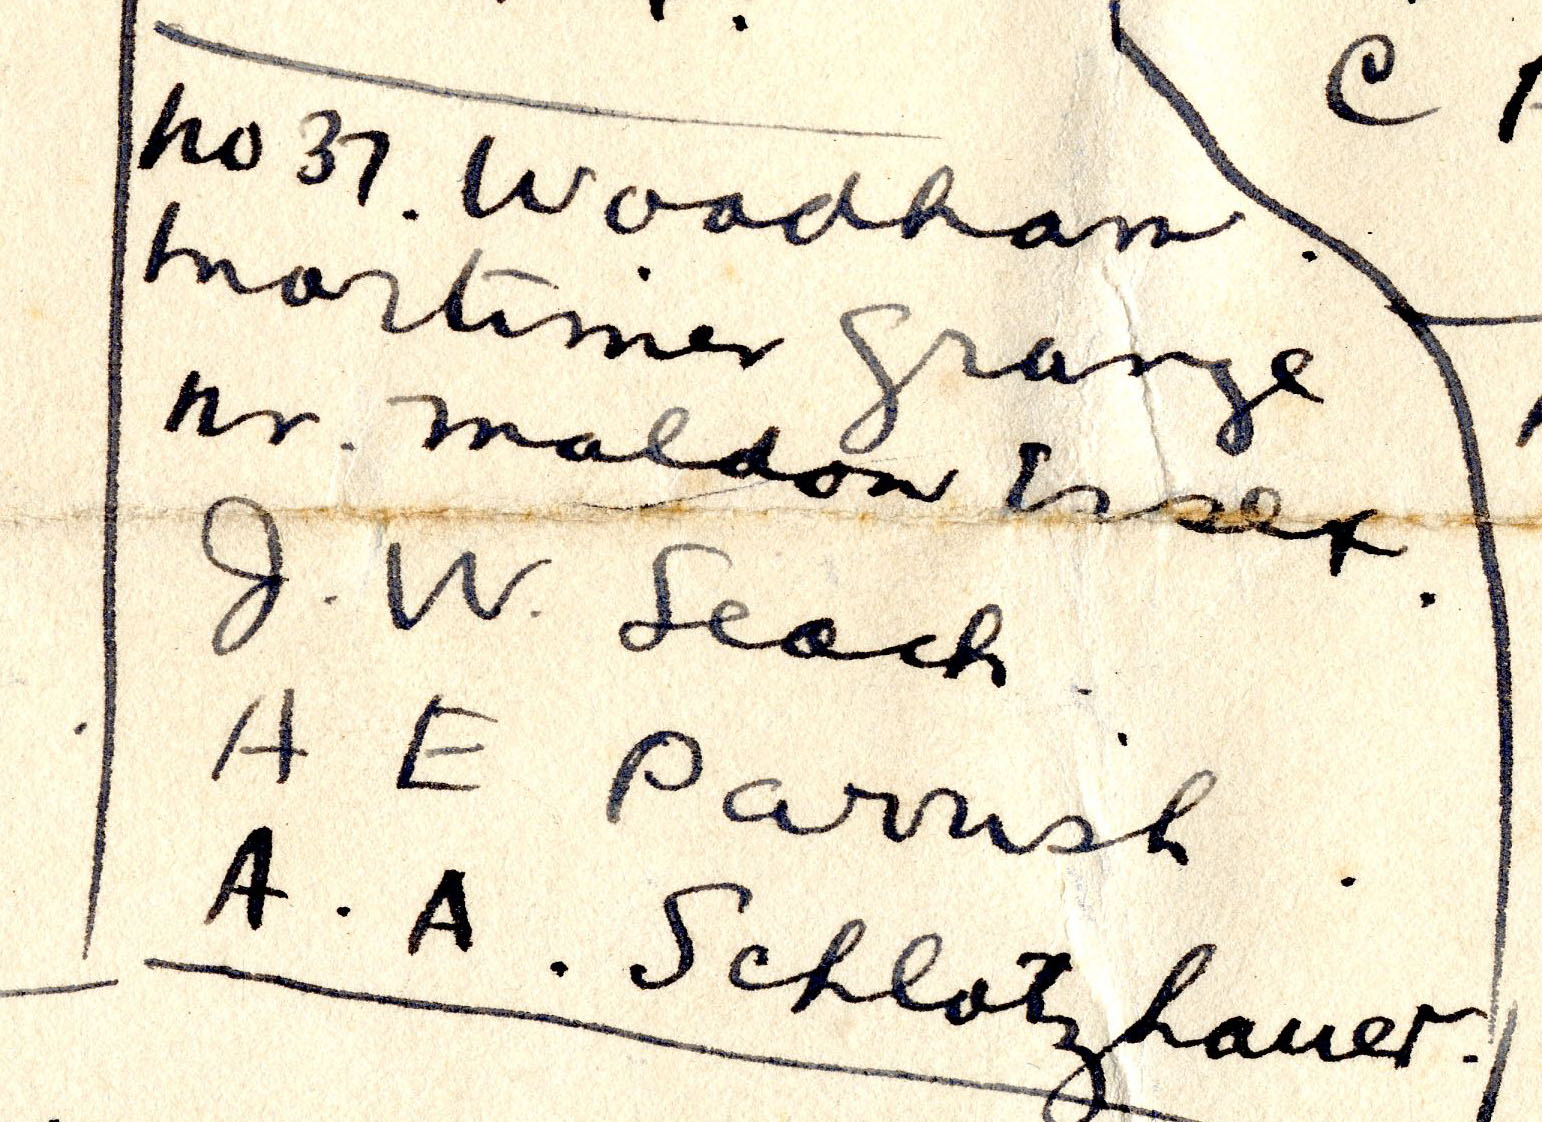 No 37. Woodham
Mortimer Grange
Nr. Maldon Essex.
J. W. Seach.
A E Parrish.
A. A. Schlotzhauer.
C